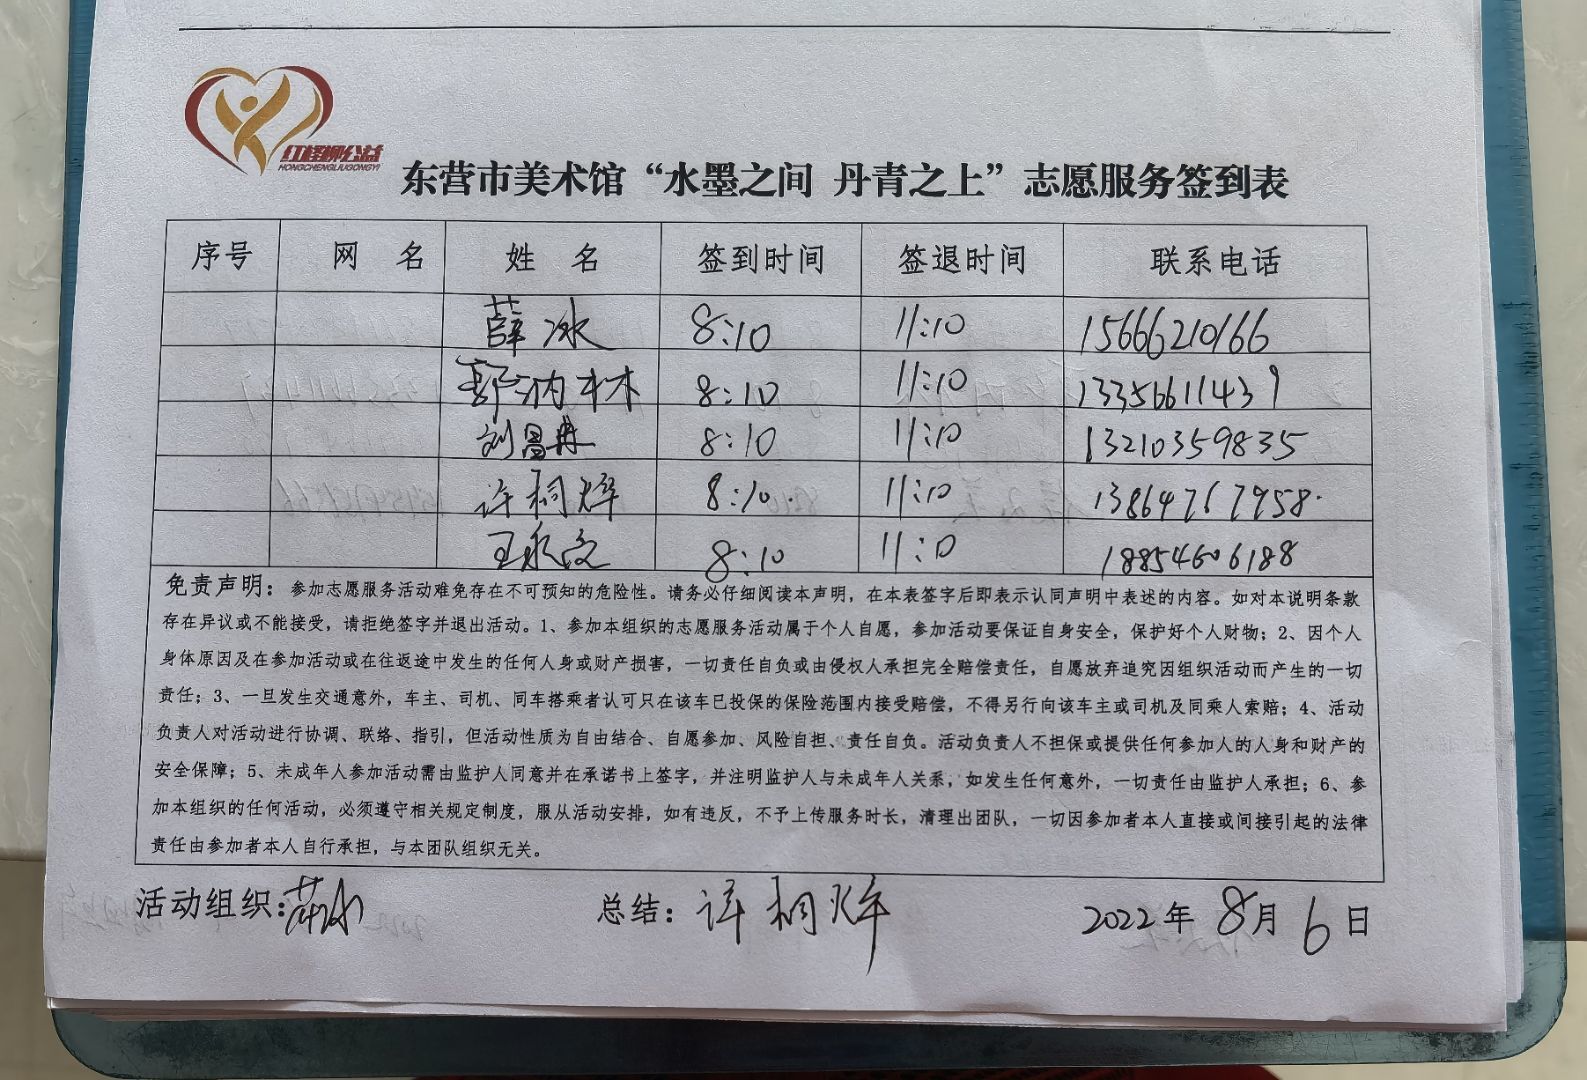 红柽柳公益
HONGCHENGLIUGONGYI
东营市美术馆“水墨之间 丹青之上”志愿服务签到表
序号 网 名 姓 名 签到时间 签退时间 联系电话
薛冰 8:10 11:10 15666210166
8:10 11:10 13356611439
刘昌冉 8:10 11:10 13210359835
许桐烨 8:10. 11:10 13864767958.
8:10 11:10 18854606188
免责声明：参加志愿服务活动难免存在不可预知的危险性。请务必仔细阅读本声明，在本表签字后即表示认同声明中表述的内容。如对本说明条款
存在异议或不能接受，请拒绝签字并退出活动。1、参加本组织的志愿服务活动属于个人自愿，参加活动要保证自身安全，保护好个人财物；2、因个人
身体原因及在参加活动或在往返途中发生的任何人身或财产损害，一切责任自负或由侵权人承担完全赔偿责任，自愿放弃追究因组织活动而产生的一切
责任；3、一旦发生交通意外，车主、司机、同车搭乘者认可只在该车已投保的保险范围内接受赔偿，不得另行向该车主或司机及同乘人索赔；4、活动
负责人对活动进行协调、联络、指引，但活动性质为自由结合、自愿参加、风险自担、责任自负。活动负责人不担保或提供任何参加人的人身和财产的
安全保障；5、未成年人参加活动需由监护人同意并在承诺书上签字，并注明监护人与未成年人关系，如发生任何意外，一切责任由监护人承担；6、参
加本组织的任何活动，必须遵守相关规定制度，服从活动安排，如有违反，不予上传服务时长，清理出团队，一切因参加者本人直接或间接引起的法律
责任由参加者本人自行承担，与本团队组织无关。
活动组织：薛冰 总结：许桐烨 2022年 8月 6日